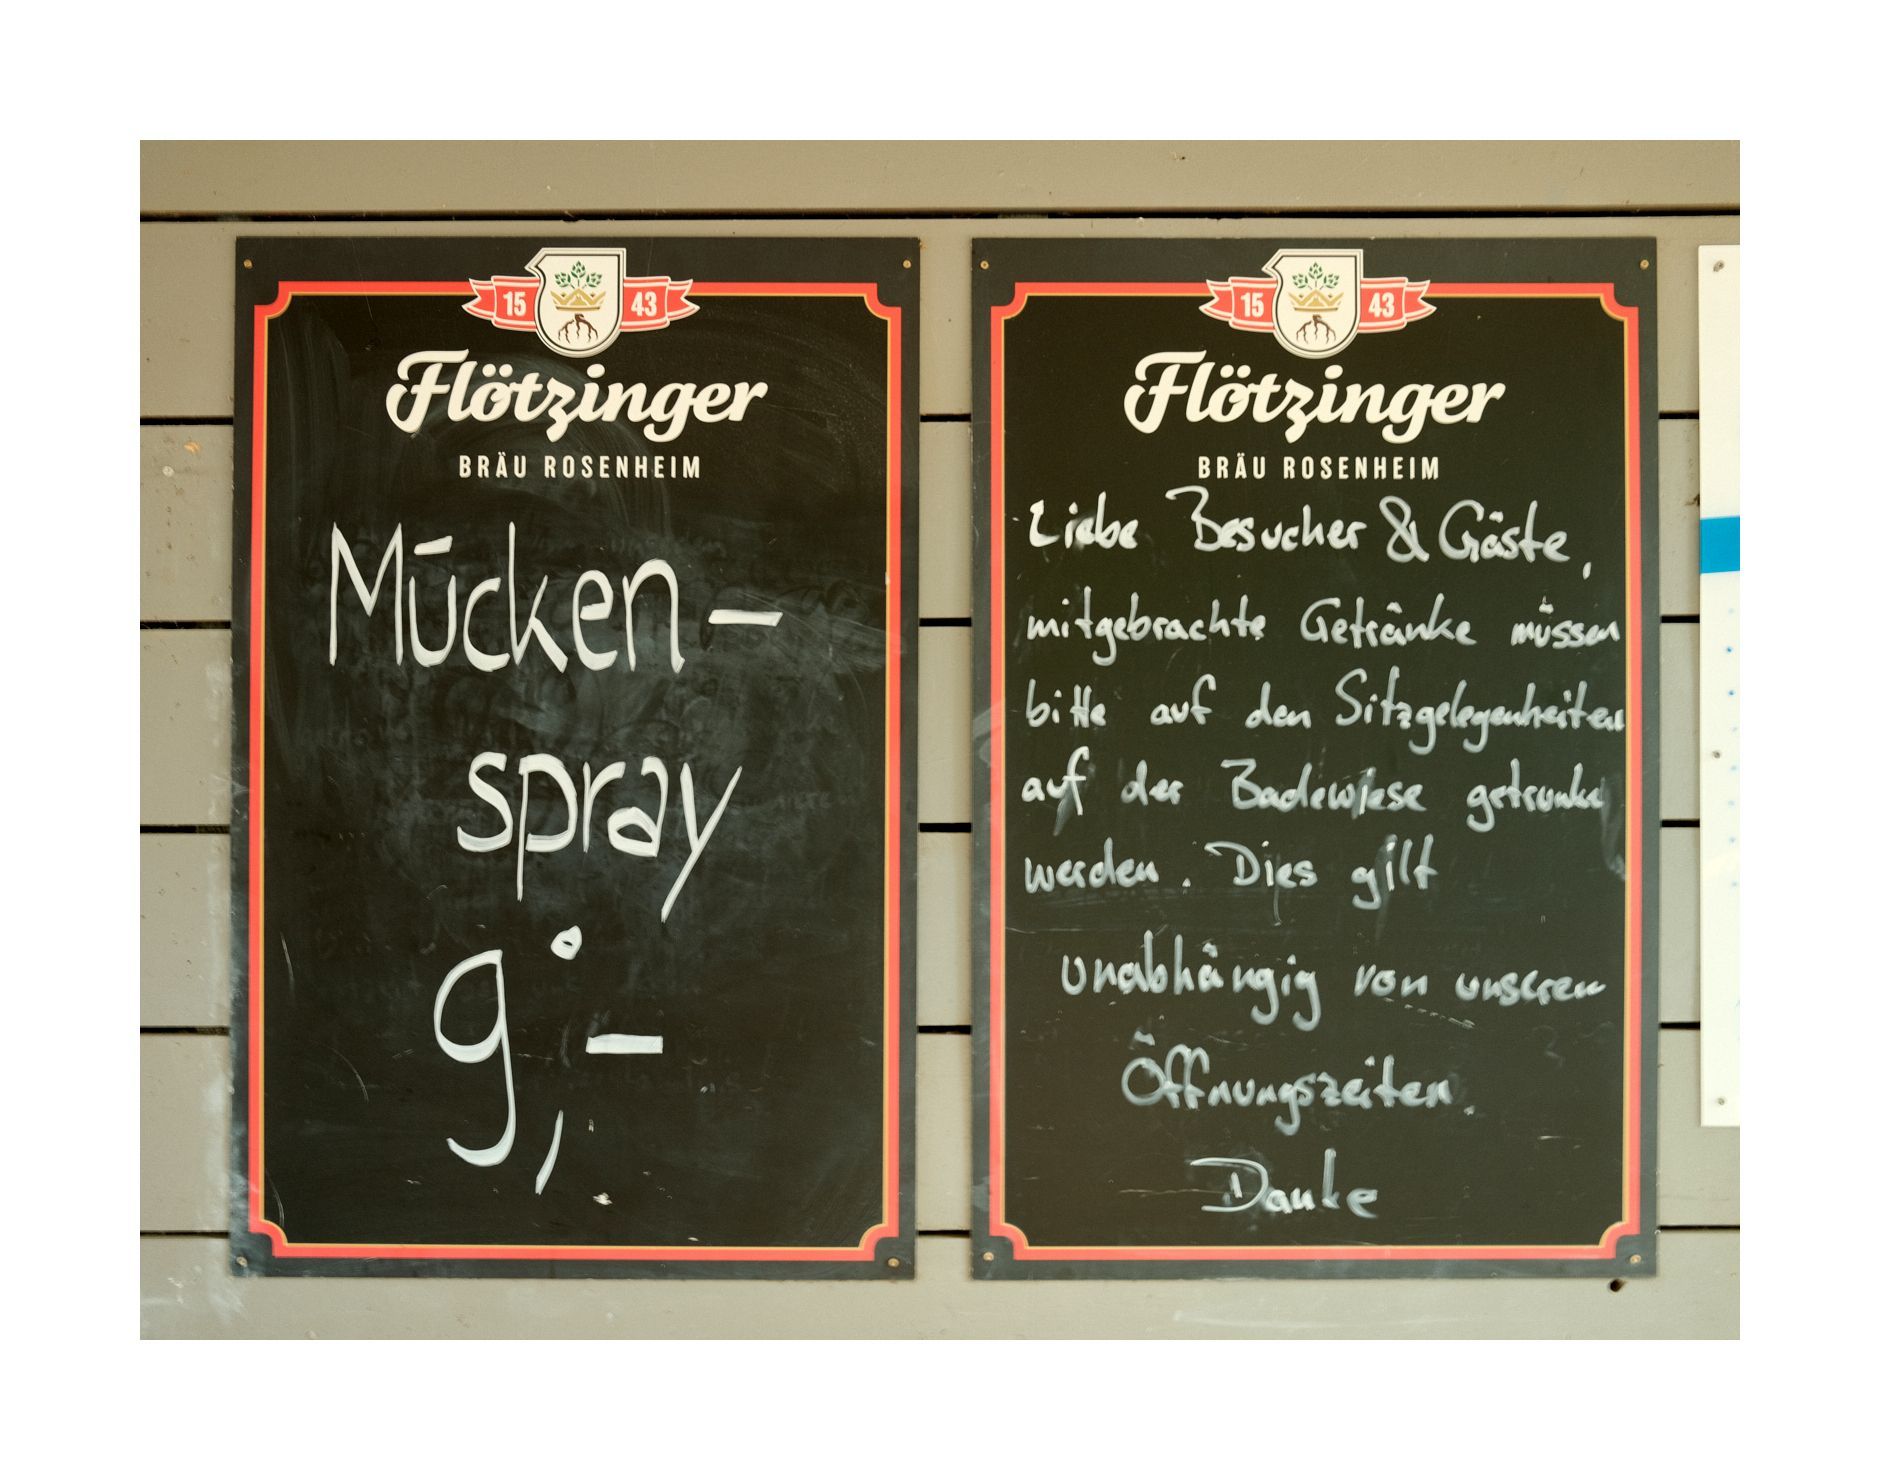 15 43
Flötzinger
BRÄU ROSENHEIM
Mücken-
spray
9,-
15 43
Flötzinger
BRÄU ROSENHEIM
Liebe Besucher & Gäste,
mitgebrachte Getränke müssen
bitte auf den Sitzgelegenheiten
auf der Badewiese getrunken
werden. Dies gilt
unabhängig von unseren
Öffnungszeiten.
Danke